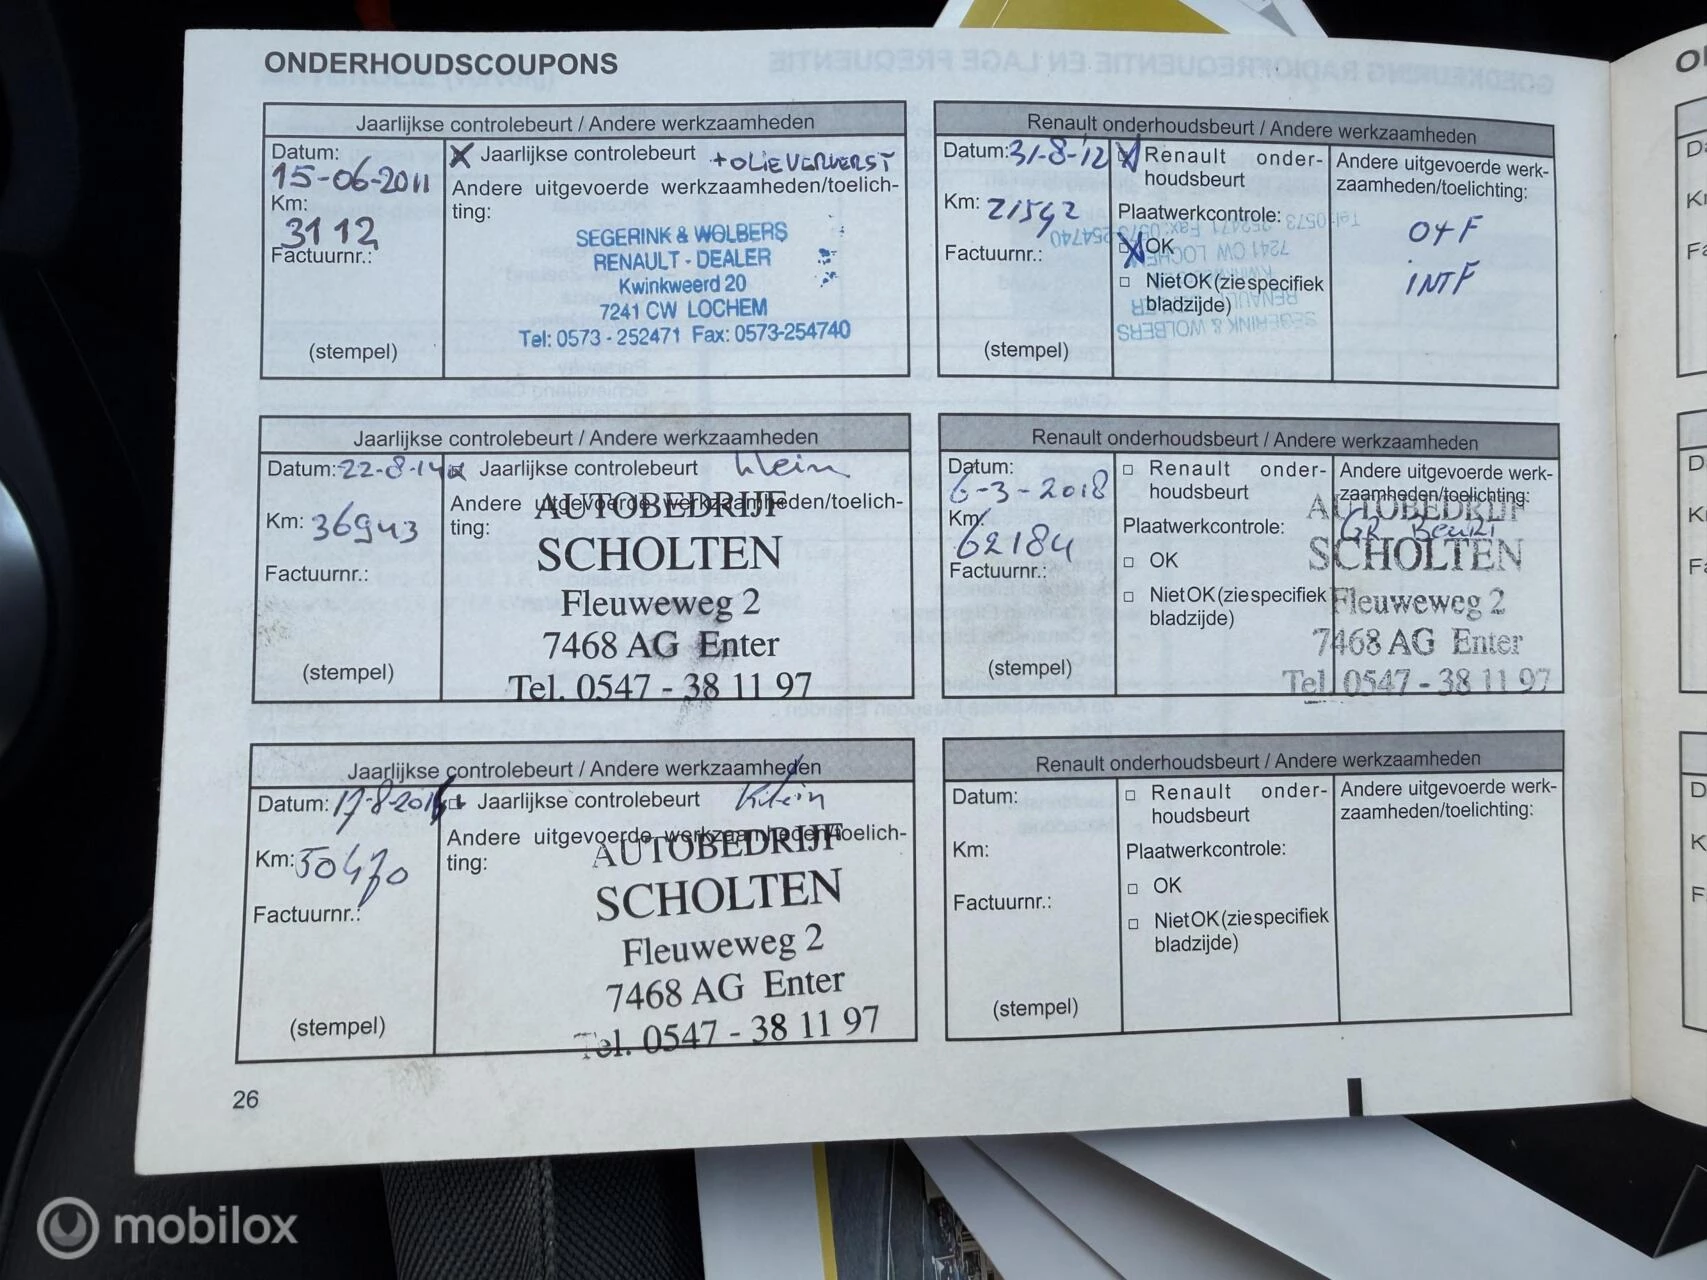 ONDERHOUDSCOUPONS
Jaarlijkse controlebeurt / Andere werkzaamheden
Datum:
15-06-2011
Km:
3112
Factuurnr.:
(stempel)
Jaarlijkse controlebeurt + OLIE VERVERST
Andere uitgevoerde werkzaamheden/toelich-
ting:
SEGERINK & WOLBERS
RENAULT - DEALER
Kwinkweerd 20
7241 CW LOCHEM
Tel: 0573 - 252471 Fax: 0573-254740
Renault onderhoudsbeurt / Andere werkzaamheden
Datum: 31-8-'12
Km: 21542
Factuurnr.:
(stempel)
Renault onder-
houdsbeurt
Plaatwerkcontrole:
OK
Niet OK (zie specifiek
bladzijde)
Andere uitgevoerde werk-
zaamheden/toelichting:
O+F
INTF
Jaarlijkse controlebeurt / Andere werkzaamheden
Datum: 22-8-14
Km: 36943
Factuurnr.:
(stempel)
Jaarlijkse controlebeurt klein
Andere uitgevoerde werkzaamheden/toelich-
ting:
AUTOBEDRIJF
SCHOLTEN
Fleuweweg 2
7468 AG Enter
Tel. 0547 - 38 11 97
Renault onderhoudsbeurt / Andere werkzaamheden
Datum:
6-3-2018
Km:
62184
Factuurnr.:
(stempel)
Renault onder-
houdsbeurt
Plaatwerkcontrole:
OK
Niet OK (zie specifiek
bladzijde)
Andere uitgevoerde werk-
zaamheden/toelichting:
GR Beurt
AUTOBEDRIJF
SCHOLTEN
Fleuweweg 2
7468 AG Enter
Tel. 0547 - 38 11 97
Jaarlijkse controlebeurt / Andere werkzaamheden
Datum: 17-8-2016
Km: 50470
Factuurnr.:
(stempel)
Jaarlijkse controlebeurt Klein
Andere uitgevoerde werkzaamheden/toelich-
ting:
AUTOBEDRIJF
SCHOLTEN
Fleuweweg 2
7468 AG Enter
Tel. 0547 - 38 11 97
Renault onderhoudsbeurt / Andere werkzaamheden
Datum:
Km:
Factuurnr.:
(stempel)
Renault onder-
houdsbeurt
Plaatwerkcontrole:
OK
Niet OK (zie specifiek
bladzijde)
Andere uitgevoerde werk-
zaamheden/toelichting:
26
mobilox